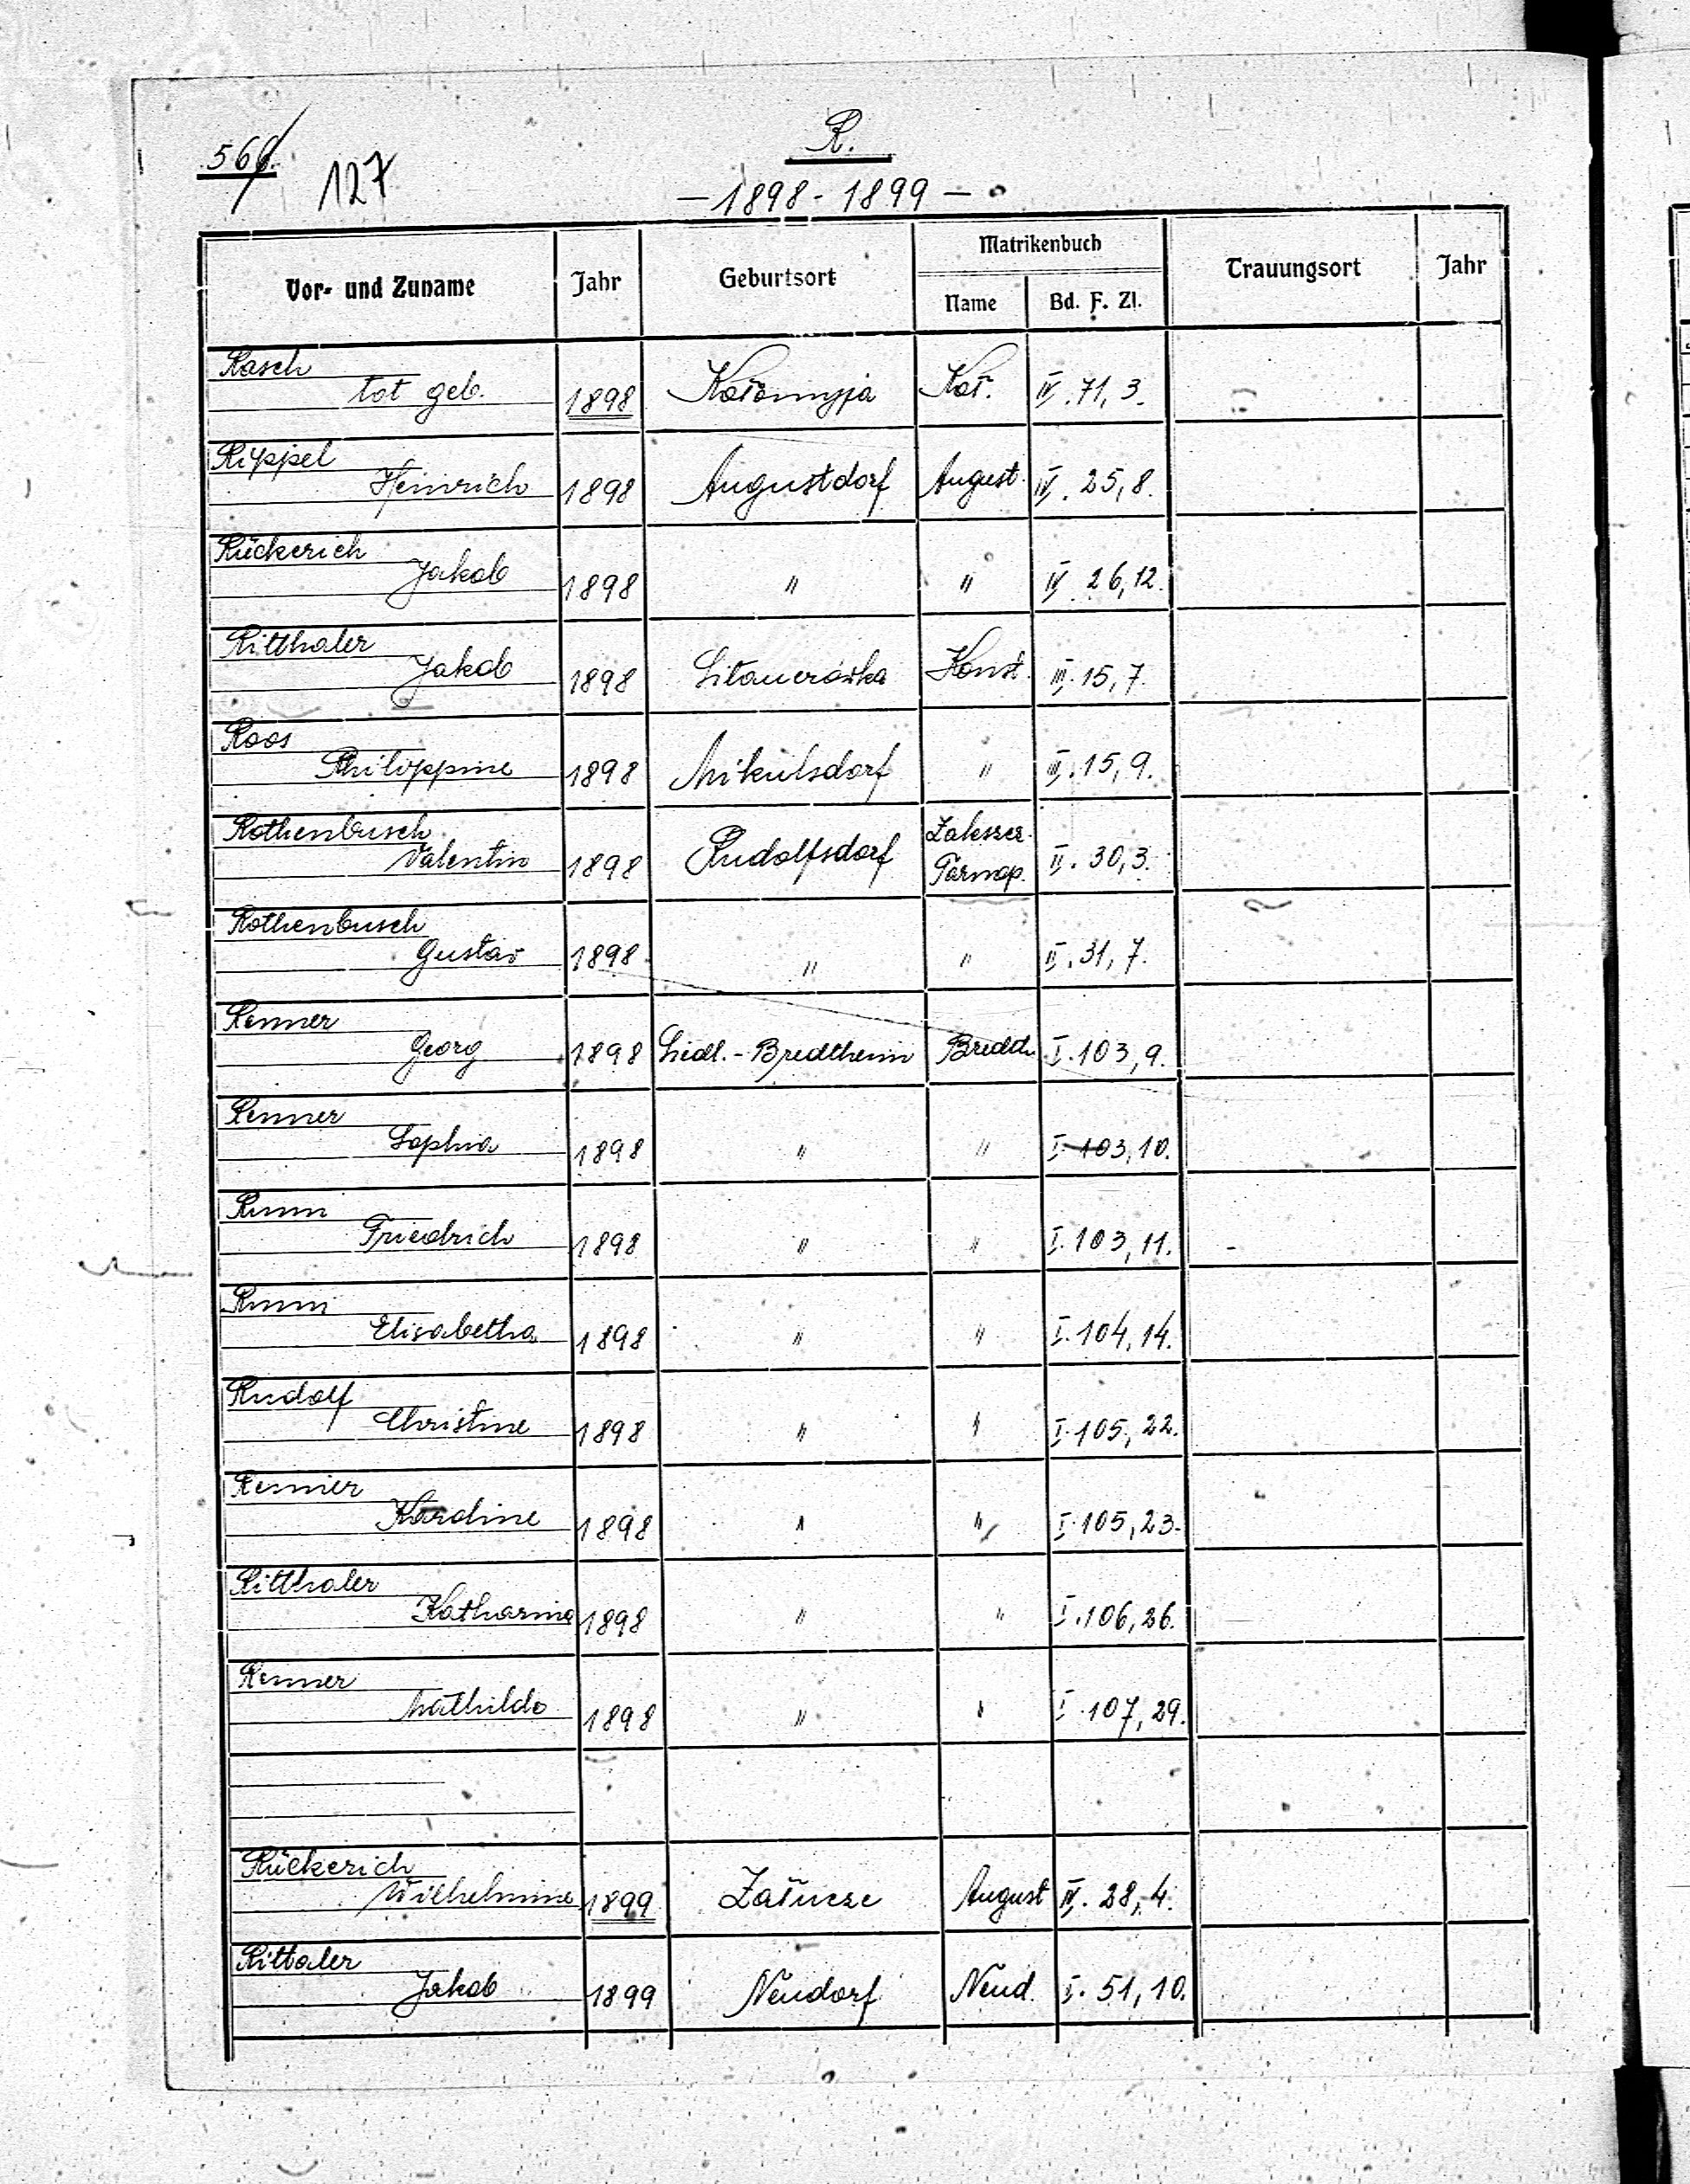 566.
127
R.
— 1898 - 1899 —
Vor- und Zuname Jahr Geburtsort Matrikenbuch Trauungsort Jahr
Name Bd. F. Zl.
Rasch
tot geb. 1898 Kołomyja Koł. IV. 71, 3.
Rippel
Heinrich 1898 Augustdorf August. IV. 25, 8.
Rückerich
Jakob 1898 " " IV. 26, 12.
Ritthaler
Jakob 1898 Konst. III. 15, 7.
Roos
Philippine 1898 Mikulsdorf " III. 15, 9.
Rothenbusch
Valentin 1898 Rudolfsdorf Zaleszcz. Tarnop. II. 30, 3.
Rothenbusch
Gustav 1898 " " II. 31, 7.
Renner
Georg 1898 Siedl.-Bredtheim Bredth. I. 103, 9.
Renner
Sophia 1898 " " I. 103, 10.
Rumm
Friedrich 1898 " " I. 103, 11.
Rumm
Elisabetha 1898 " " I. 104, 14.
Rudolf
Christine 1898 " " I. 105, 22.
Renner
Karoline 1898 " " I. 105, 23.
Ritthaler
Katharina 1898 " " I. 106, 26.
Renner
Mathilde 1898 " " I. 107, 29.
Rückerich
Wilhelmine 1899 Załucze August IV. 28, 4.
Rittaler
Jakob 1899 Neudorf Neud. I. 51, 10.